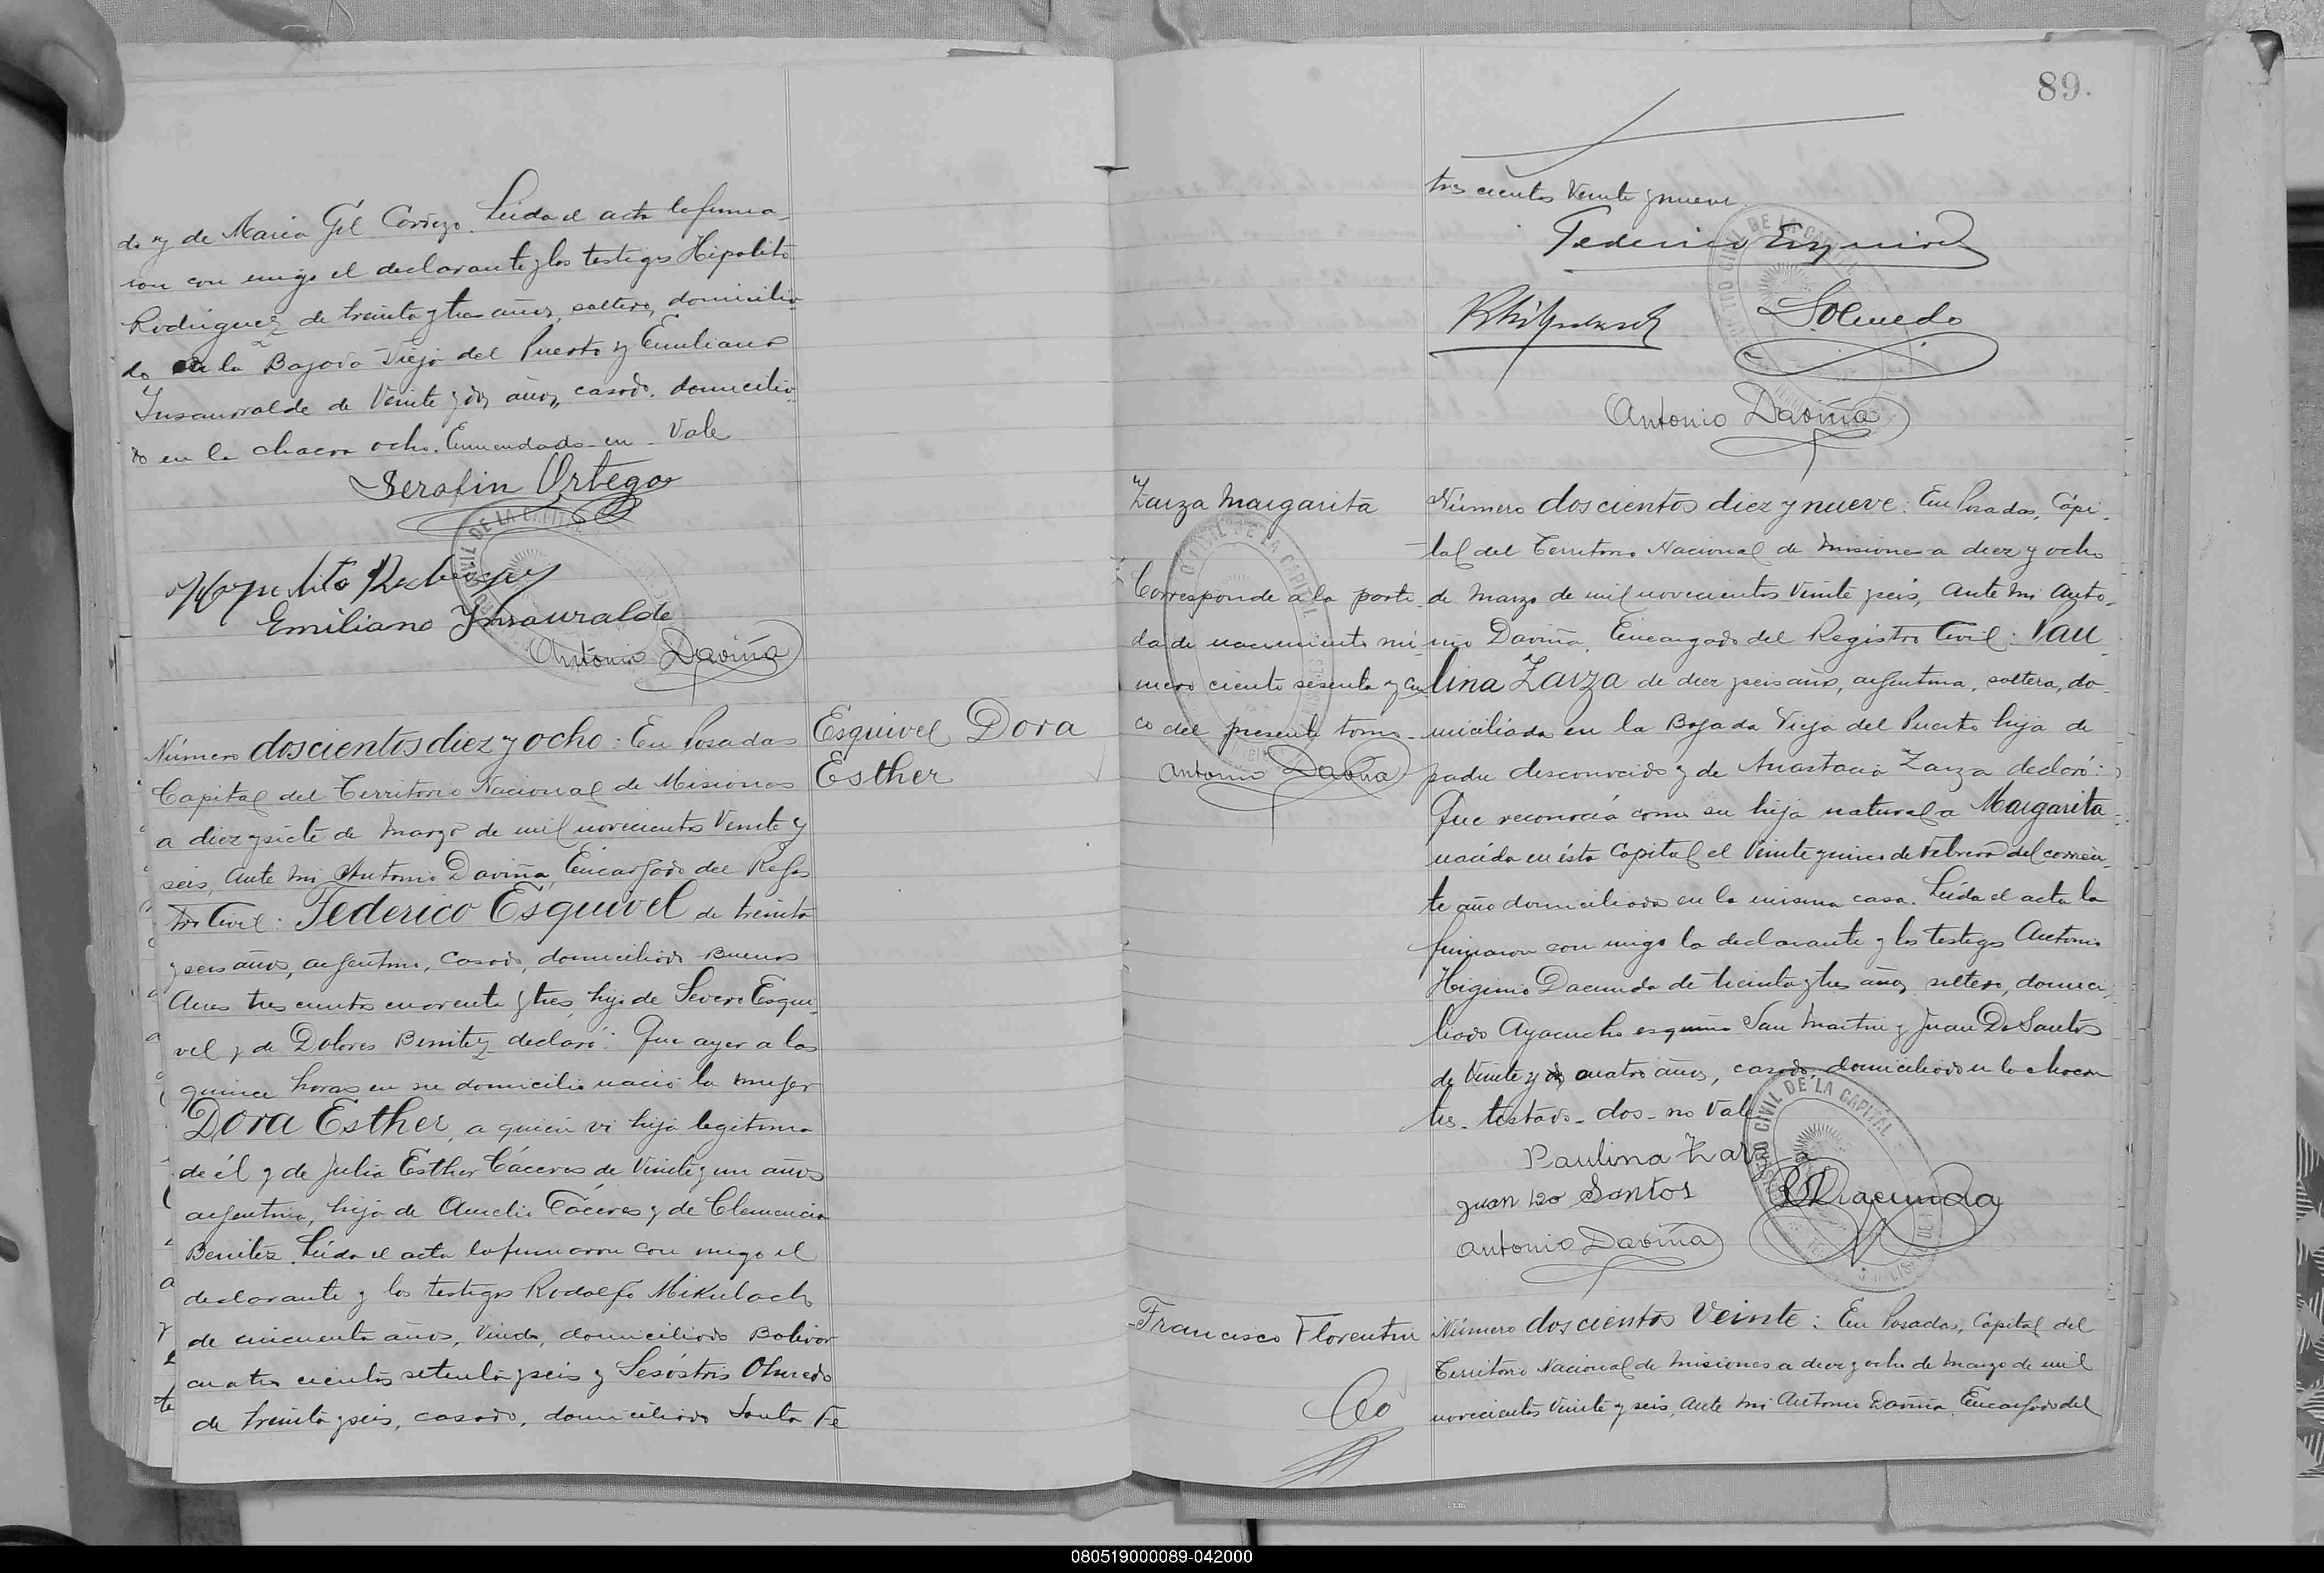 do y de Maria Gil Corrego. Leída el acta la firma-
ron con migo el declarante y los testigos Hipolito
Rodriguez de treinta y tres años, soltero, domicilia-
do en la Bajada Vieja del Puerto y Emiliano
Insaurralde de veinte y dos años, casado, domicilia-
do en la chacra ocho. Enmendado-en-Vale
Serafin Ortega
Hipolito Rodriguez
Emiliano Ynsauralde
Antonio Daviña
Esquivel Dora
Esther
Número doscientos diez y ocho: En Posadas
Capital del Territorio Nacional de Misiones
a diez y siete de Marzo de mil novecientos veinte y
seis, Ante mi Antonio Daviña, Encargado del Regis
tro Civil: Federico Esquivel de treinta
y seis años, argentino, casado, domiciliado Buenos
Aires tres cientos cuarenta y tres, hijo de Severo Esqui-
vel y de Dolores Benitez declaró: Que ayer a las
quince horas en su domicilio nació la mujer
Dora Esther, a quien vi hija legitima
de él y de Julia Esther Cáceres de veinte y un años
argentina, hija de Aurelio Cáceres y de Clemencia
Benitez. Leída el acta la firmaron con migo el
declarante y los testigos Rodolfo Mikulach
de cincuenta años, viudo, domiciliado Bolivar
cuatro cientos setenta y seis y Sesóstris Olmedo
de treinta y seis, casado, domiciliado Santa Fe
89.
tres cientos veinte y nueve.
Federico Esquivel
SOlmedo
Antonio Daviña
Zarza Margarita
Corresponde a la parti-
da de nacimiento nú-
mero ciento sesenta y cin
co del presente tomo-
Antonio Daviña
Número doscientos diez y nueve: En Posadas, Capi-
tal del Territorio Nacional de Misiones a diez y ocho
de Marzo de mil novecientos veinte y seis, Ante mi Anto-
nio Daviña, Encargado del Registro Civil: Pau
lina Zarza de diez y seis años, argentina, soltera, do-
miciliada en la Bajada Vieja del Puerto hija de
padre desconocido y de Anastacia Zarza declaró:
Que reconocía como su hija natural a Margarita
nacida en ésta Capital el veinte y cinco de Febrero del corrien-
te año domiciliada en la misma casa. Leída el acta la
firmaron con migo la declarante y los testigos Antonio
Higinio Dacunda de treinta y tres años, soltero, domici-
liado Ayacucho esquina San Martin y Juan Do Santos
de veinte y dos cuatro años, casado, domiciliado en la chacra
tres. Testado-dos-no Vale
Paulina Zarza
Juan Do Santos
Dacunda
Antonio Daviña
REGISTRO CIVIL DE LA CAPITAL
Francisco Florentin
Número doscientos veinte: En Posadas, Capital del
Territorio Nacional de Misiones a diez y ocho de Marzo de mil
novecientos veinte y seis, Ante mi Antonio Daviña, Encargado del
080519000089-042000